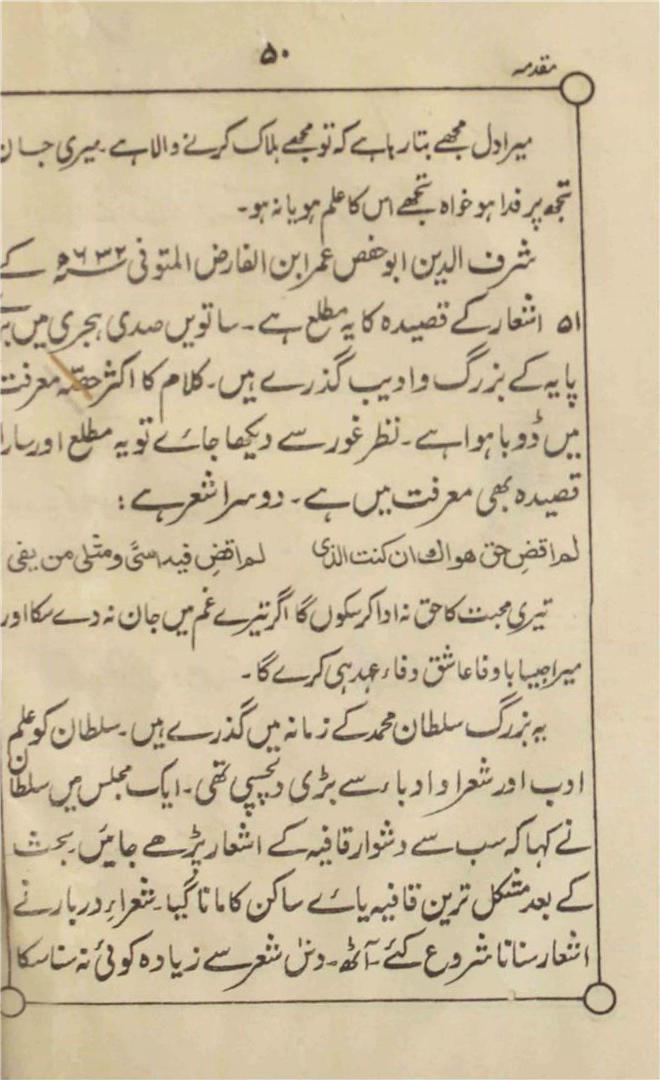 ۵۰
مقدمہ
میرا دل مجھے بتا رہا ہے کہ تو مجھے ہلاک کرنے والا ہے۔ میری جان
تجھ پر فدا ہو خواہ تجھے اس کا علم ہو یا نہ ہو۔
شرف الدین ابو حفص عمر ابن الفارض المتوفی ۶۳۲ھ کے
۵۱ اشعار کے قصیدہ کا یہ مطلع ہے۔ ساتویں صدی ہجری میں
پایہ کے بزرگ و ادیب گذرے ہیں۔ کلام کا اکثر حصّہ معرفت
میں ڈوبا ہوا ہے۔ نظر غور سے دیکھا جائے تو یہ مطلع اور سارا
قصیدہ بھی معرفت میں ہے۔ دوسرا شعر ہے :
لم اقضِ حق هواك ان كنت الذی لم اقضِ فيه اسىً ومثلی من یفی
تیری محبت کا حق نہ ادا کر سکوں گا اگر تیرے غم میں جان نہ دے سکا اور
میرا جیسا با وفا عاشق وفاء عہد ہی کرے گا۔
یہ بزرگ سلطان محمد کے زمانہ میں گذرے ہیں۔ سلطان کو علم
ادب اور شعرا و ادباء سے بڑی دلچسپی تھی۔ ایک مجلس میں سلطان
نے کہا کہ سب سے دشوار قافیہ کے اشعار پڑھے جائیں۔ بحث
کے بعد مشکل ترین قافیہ یائے ساکن کا مانا گیا۔ شعراءِ دربار نے
اشعار سنانا شروع کئے۔ آٹھ۔ دس شعر سے زیادہ کوئی نہ سنا سکا